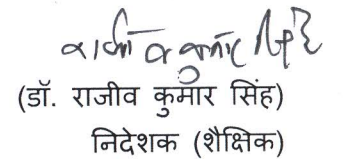 राजीव कुमार सिंह
(डॉ. राजीव कुमार सिंह)
निदेशक (शैक्षिक)